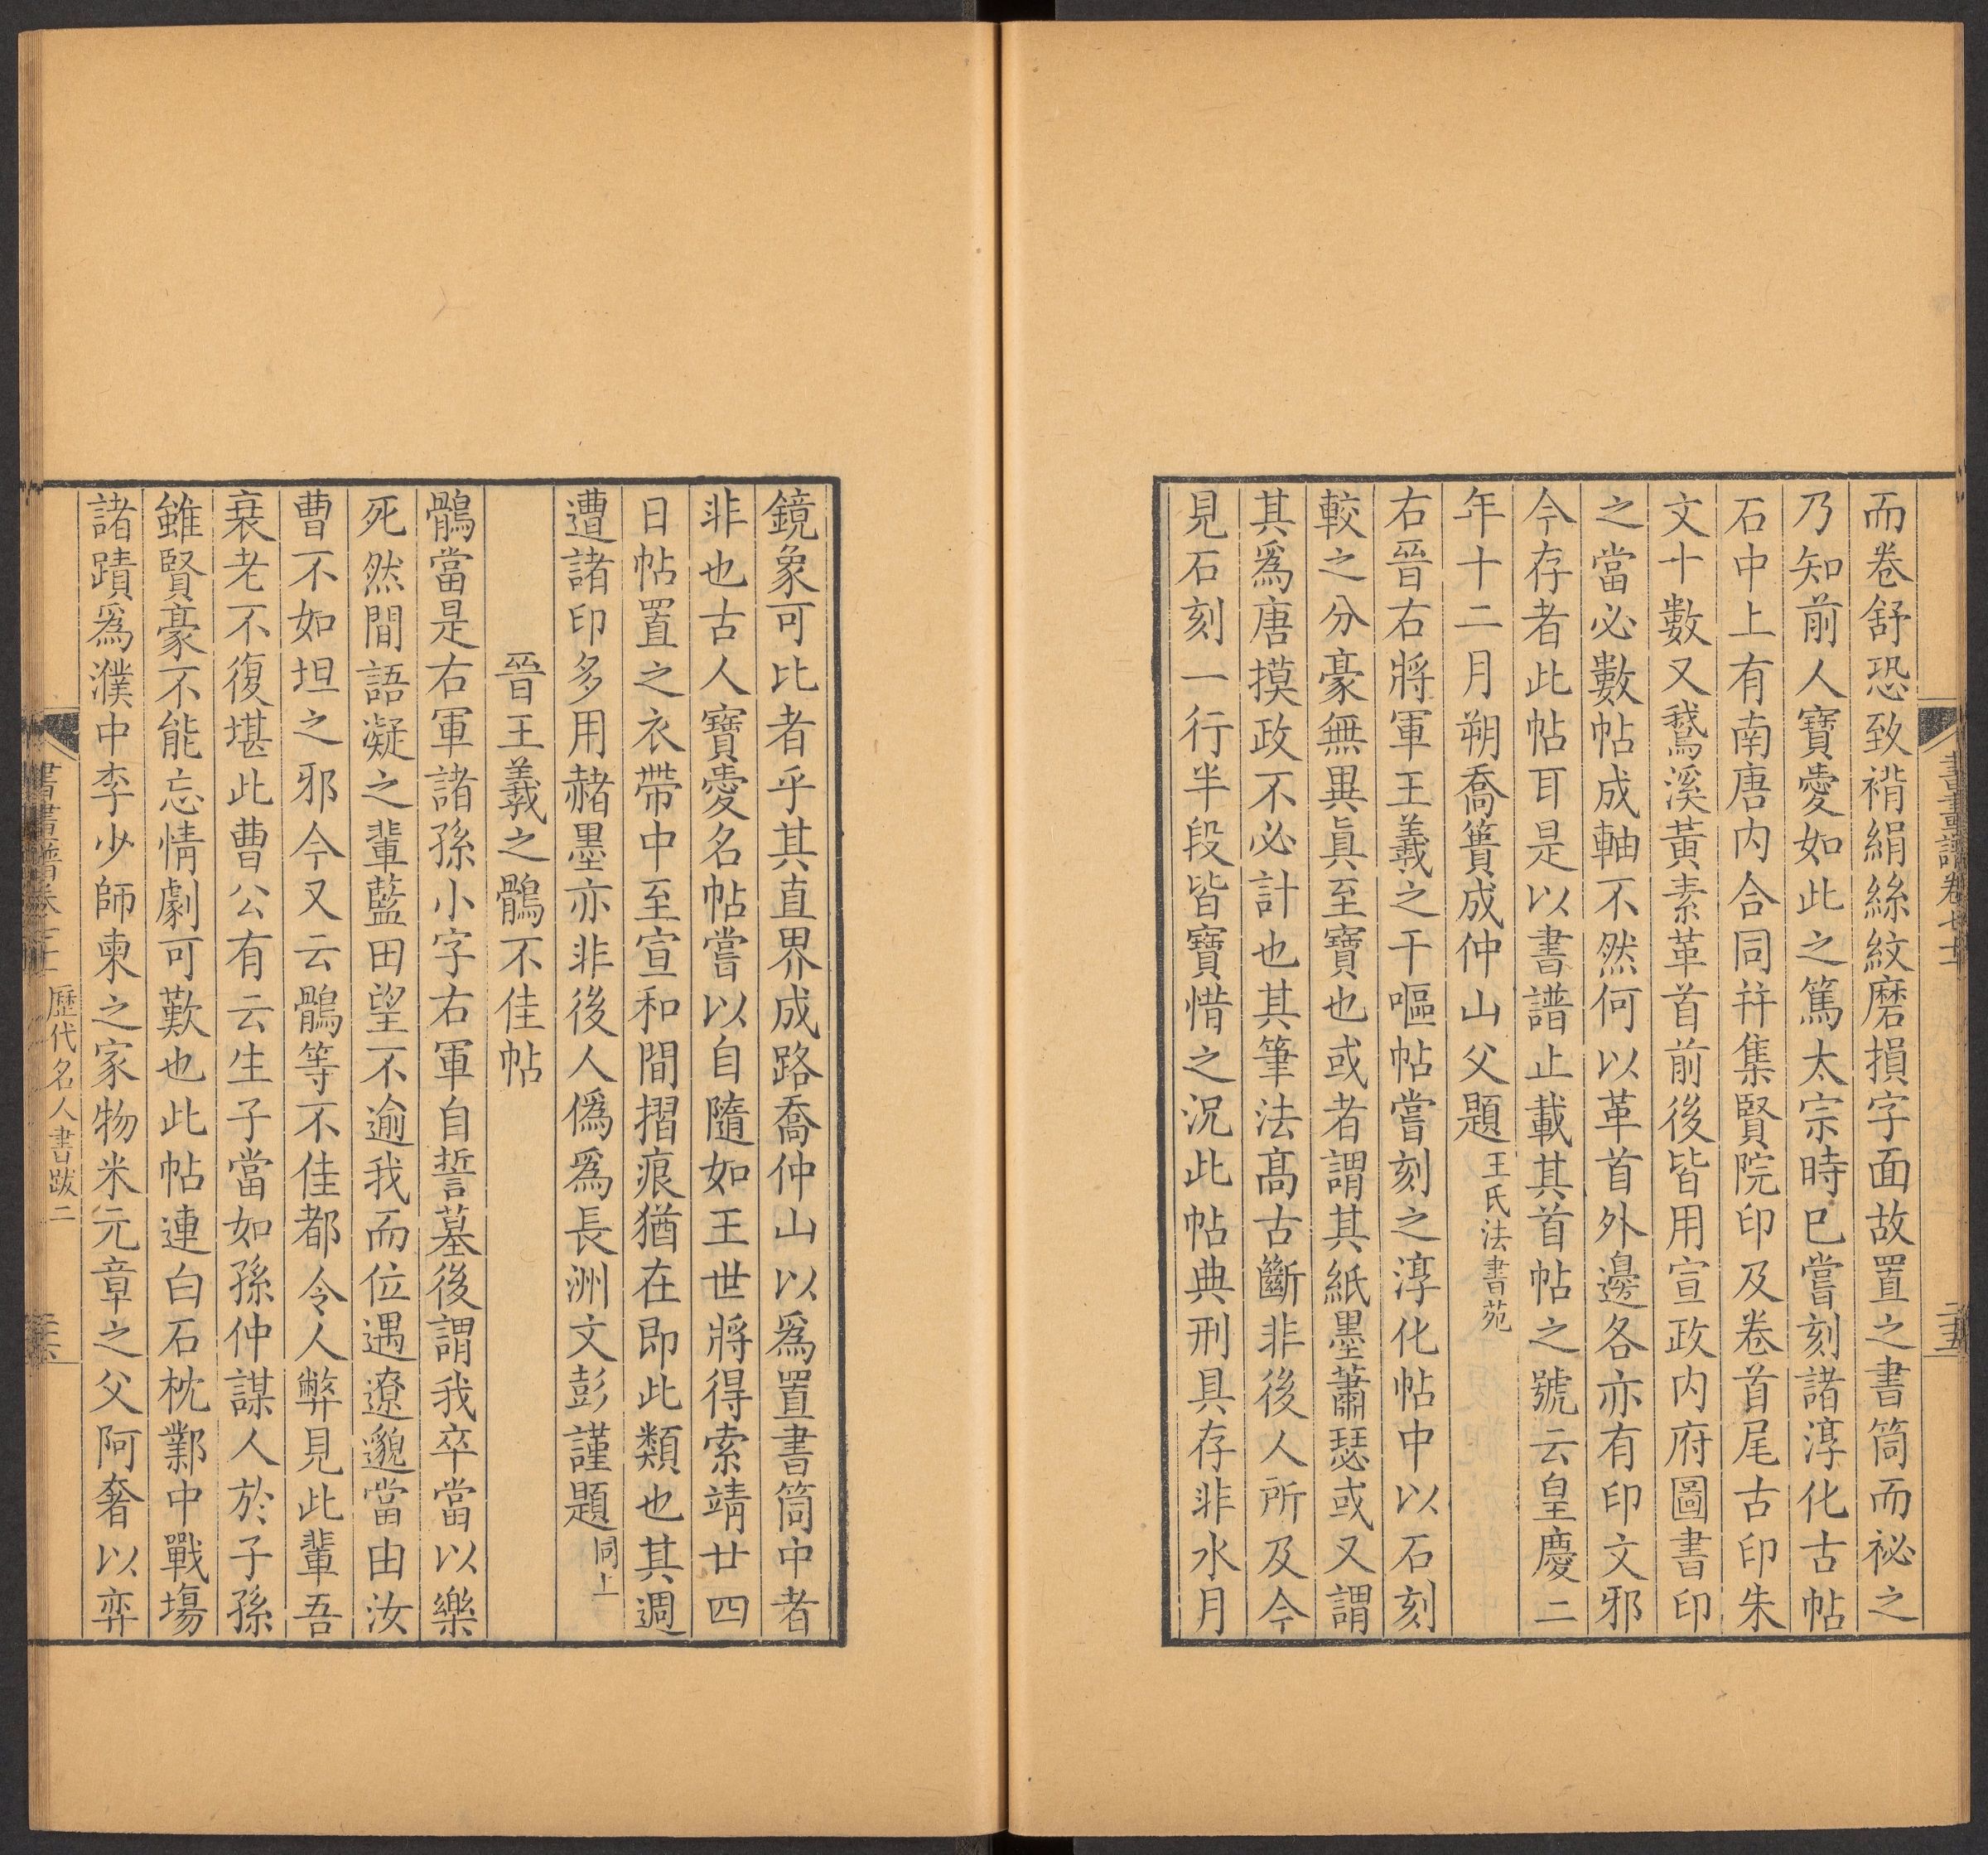 書畫譜卷七十二
二十五
而卷舒恐致褙絹絲紋磨損字面故置之書筒而祕之
乃知前人寶愛如此之篤太宗時已嘗刻諸淳化古帖
石中上有南唐内合同并集賢院印及卷首尾古印朱
文十數又鵞溪黃素革首前後皆用宣政内府圖書印
之當必數帖成軸不然何以革首外邊各亦有印文邪
今存者此帖耳是以書譜止載其首帖之號云皇慶二
年十二月朔喬簣成仲山父題王氏法書苑
右晉右將軍王羲之干嘔帖嘗刻之淳化帖中以石刻
較之分豪無異眞至寶也或者謂其紙墨蕭瑟或又謂
其爲唐摸政不必計也其筆法髙古斷非後人所及今
見石刻一行半段皆寶惜之况此帖典刑具存非水月
鏡象可比者乎其直界成路喬仲山以爲置書筒中者
非也古人寶愛名帖嘗以自隨如王世將得索靖廿四
日帖置之衣帶中至宣和間摺痕猶在即此類也其週
遭諸印多用赭墨亦非後人僞爲長洲文彭謹題同上
晉王羲之鶻不佳帖
鶻當是右軍諸孫小字右軍自誓墓後謂我卒當以樂
死然間語凝之輩藍田望不逾我而位遇遼邈當由汝
曹不如坦之邪今又云鶻等不佳都令人弊見此輩吾
衰老不復堪此曹公有云生子當如孫仲謀人於子孫
雖賢豪不能忘情劇可歎也此帖連白石枕鄴中戰塲
諸蹟爲濮中李少師柬之家物米元章之父阿奢以弈
書畫譜卷七十二
歷代名人書跋二
二十六